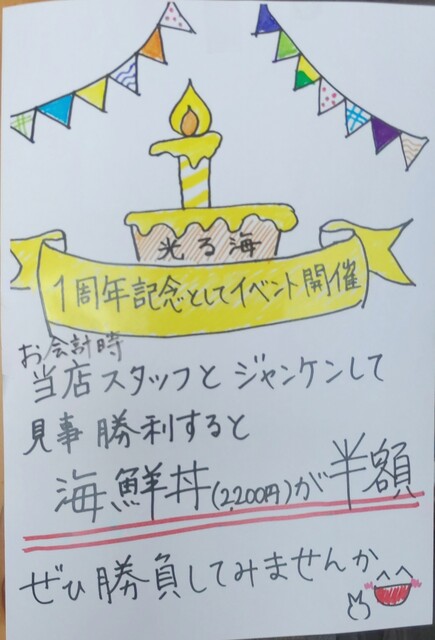 光る海
1周年記念としてイベント開催
お会計時
当店スタッフとジャンケンして
見事勝利すると
海鮮丼(2,200円)が半額
ぜひ勝負してみませんか